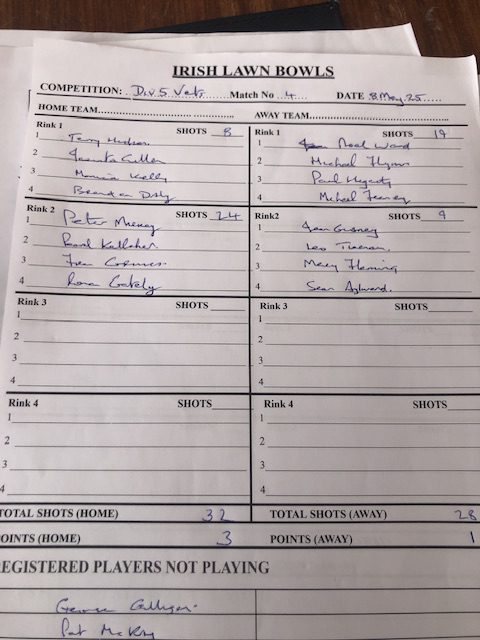 IRISH LAWN BOWLS
COMPETITION: Div 5 Vets Match No 4 DATE 8 May 25
HOME TEAM AWAY TEAM
Rink 1 SHOTS 8 Rink 1 SHOTS 19
1 Terry 1 Noal Ward
2 Cullen 2 Michael Flynn
3 Kelly 3 Paul Hegarty
4 Brendan 4 Micheal Feeney
Rink 2 SHOTS 24 Rink2 SHOTS 9
1 Peter 1
2 2 Leo
3 3 Mary Fleming
4 Rona Gately 4 Sean Aylward.
Rink 3 SHOTS Rink 3 SHOTS
1 1
2 2
3 3
4 4
Rink 4 SHOTS Rink 4 SHOTS
1 1
2 2
3 3
4 4
TOTAL SHOTS (HOME) 32 TOTAL SHOTS (AWAY) 28
POINTS (HOME) 3 POINTS (AWAY) 1
REGISTERED PLAYERS NOT PLAYING
George
Pat McKay